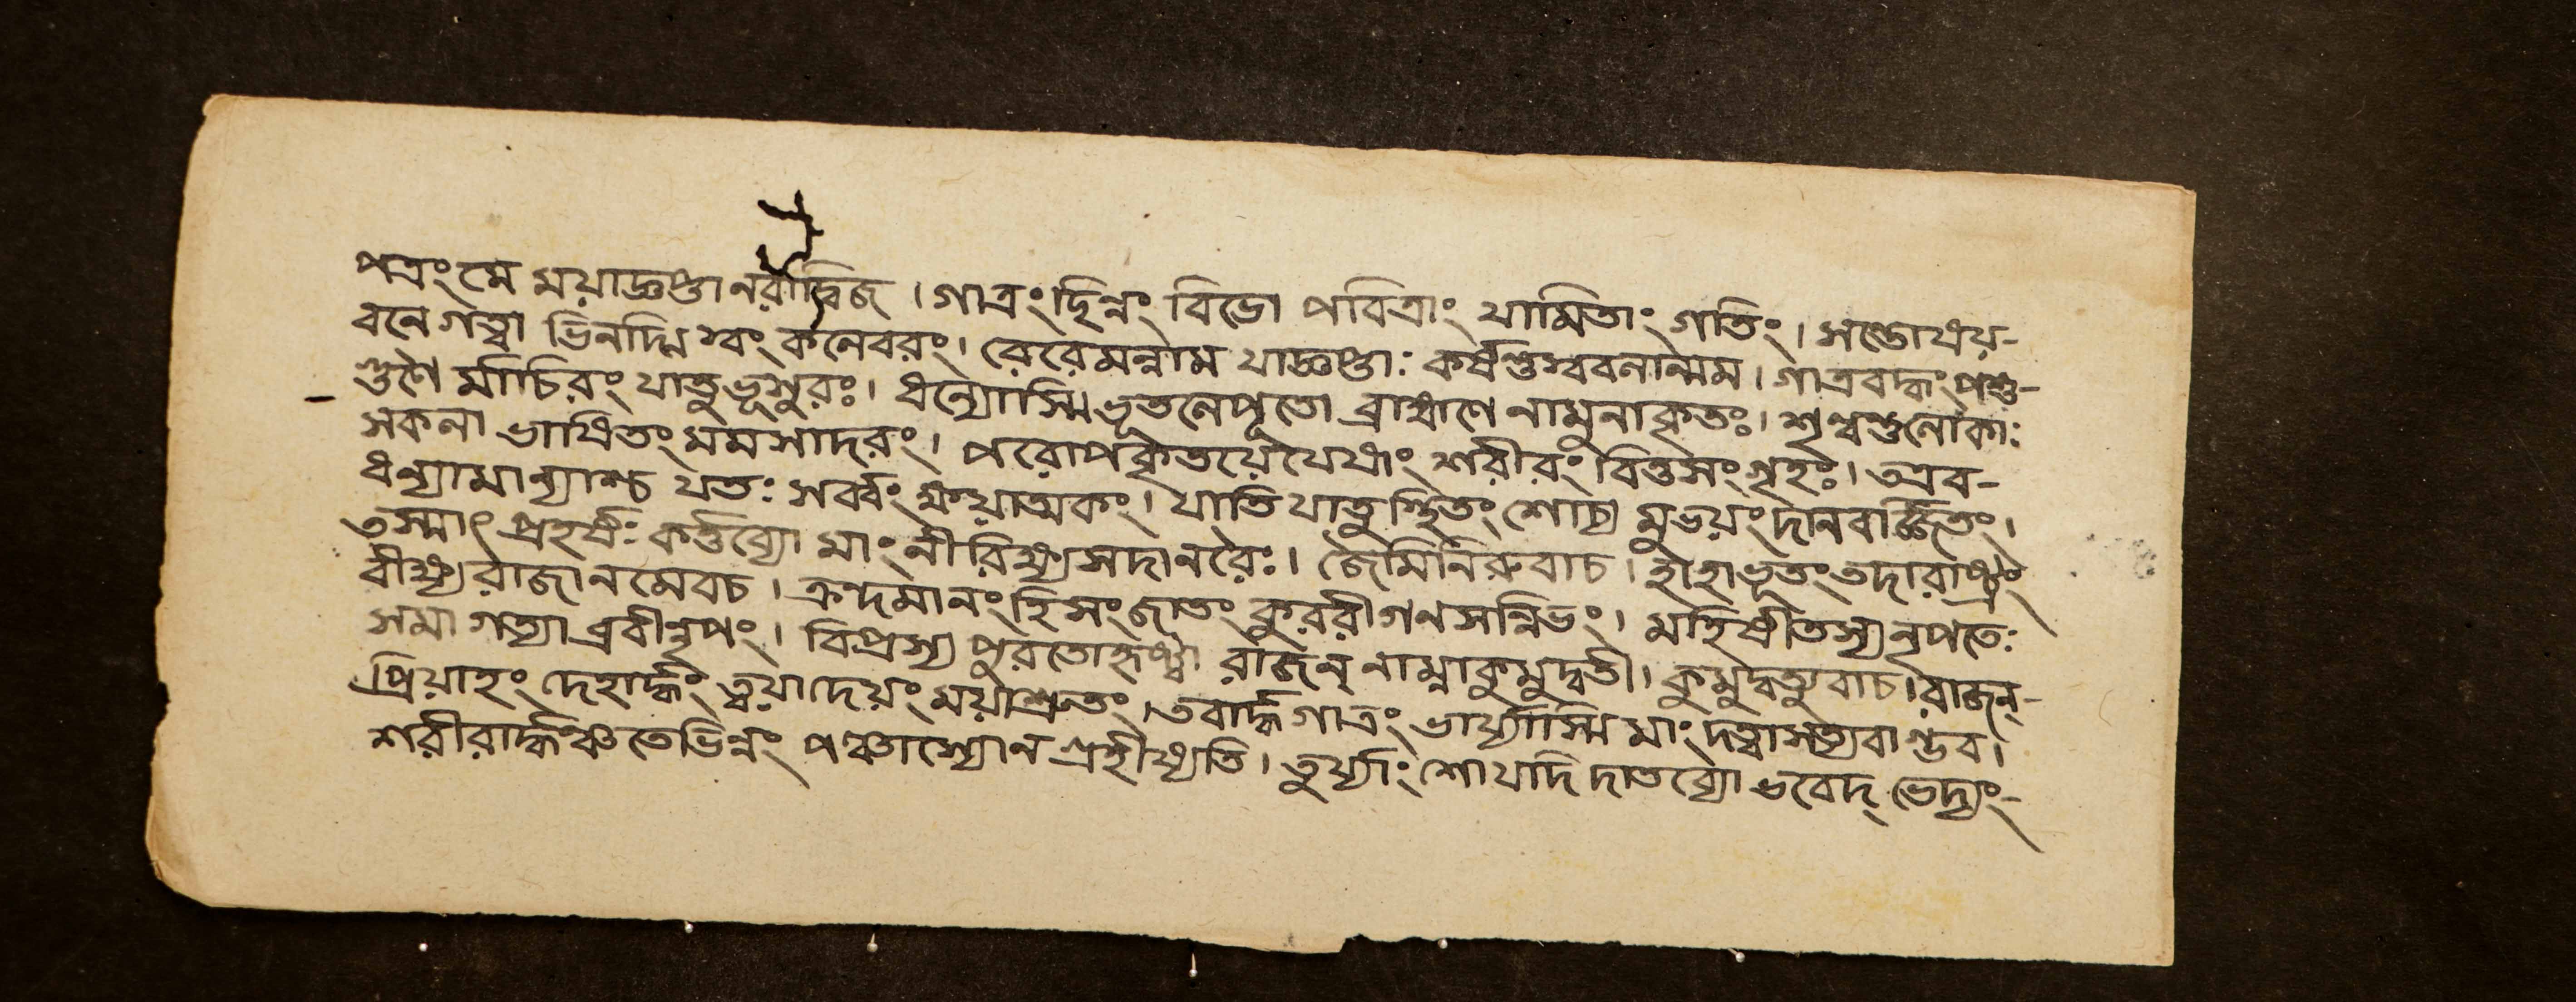 পত্রং মে ময়াজ্ঞপ্তা নরাদ্বিজ । গাত্রং ছিন্নং বিভো পবিত্রাং যামিতাং গতিং । সপ্তোথয়-
বনে গত্বা ভিনদ্মি স্বং কলেবরং । রেরেমল্লাম যাজ্ঞপ্তাঃ কর্ষন্তুস্ববলান্মম । গাত্রবদ্ধং পশু-
গুণৈ র্মাচিরং যাতুভূসুরঃ । ধন্যোস্মি ভূতলেপূতো ব্রাহ্মণে নামুনাকৃতঃ । শৃণ্বন্তুলোকাঃ
সকলা ভাষিতং মমসাদরং । পরোপকৃতয়েযেষাং শরীরং বিত্তসংগৃহঃ । তএব-
ধন্যামান্যাশ্চ যতঃ সর্ব্বং ক্ষয়াত্মকং । যাতি যাতুস্থিতং শোচ্য মুভয়ংদানবর্জ্জিতং ।
তস্মাৎ প্রহর্ষঃ কর্ত্তব্যো মাং নীরিক্ষ্যসদানরৈঃ । জৈমিনিরুবাচ । হাহাভূতংতদারাষ্ট্রং
বীক্ষ্যরাজানমেবচ । ক্রন্দমানংহিসংজাতং কুররীগণসন্নিভং । মহিষীতস্যনৃপতেঃ
সমাগত্যাব্রবীনৃপং । বিপ্রস্য পুরতোহৃষ্টা রাজন্ নাম্নাকুমুদ্বতী । কুমুদ্বত্যুবাচ । রাজন্-
প্রিয়াহং দেহার্দ্ধং ত্বয়াদেয়ং ময়াশ্রুতং । তবার্দ্ধগাত্রং ভার্য্যাস্মি মাং দত্বাসত্যবাগ্ভব ।
শরীরার্দ্ধঞ্চতেভিন্নং পঞ্চাস্যোন গ্রহীষ্যতি । তুর্য্যাংশোযদি দাতব্যো ভবেদ্ ভেদ্যং-